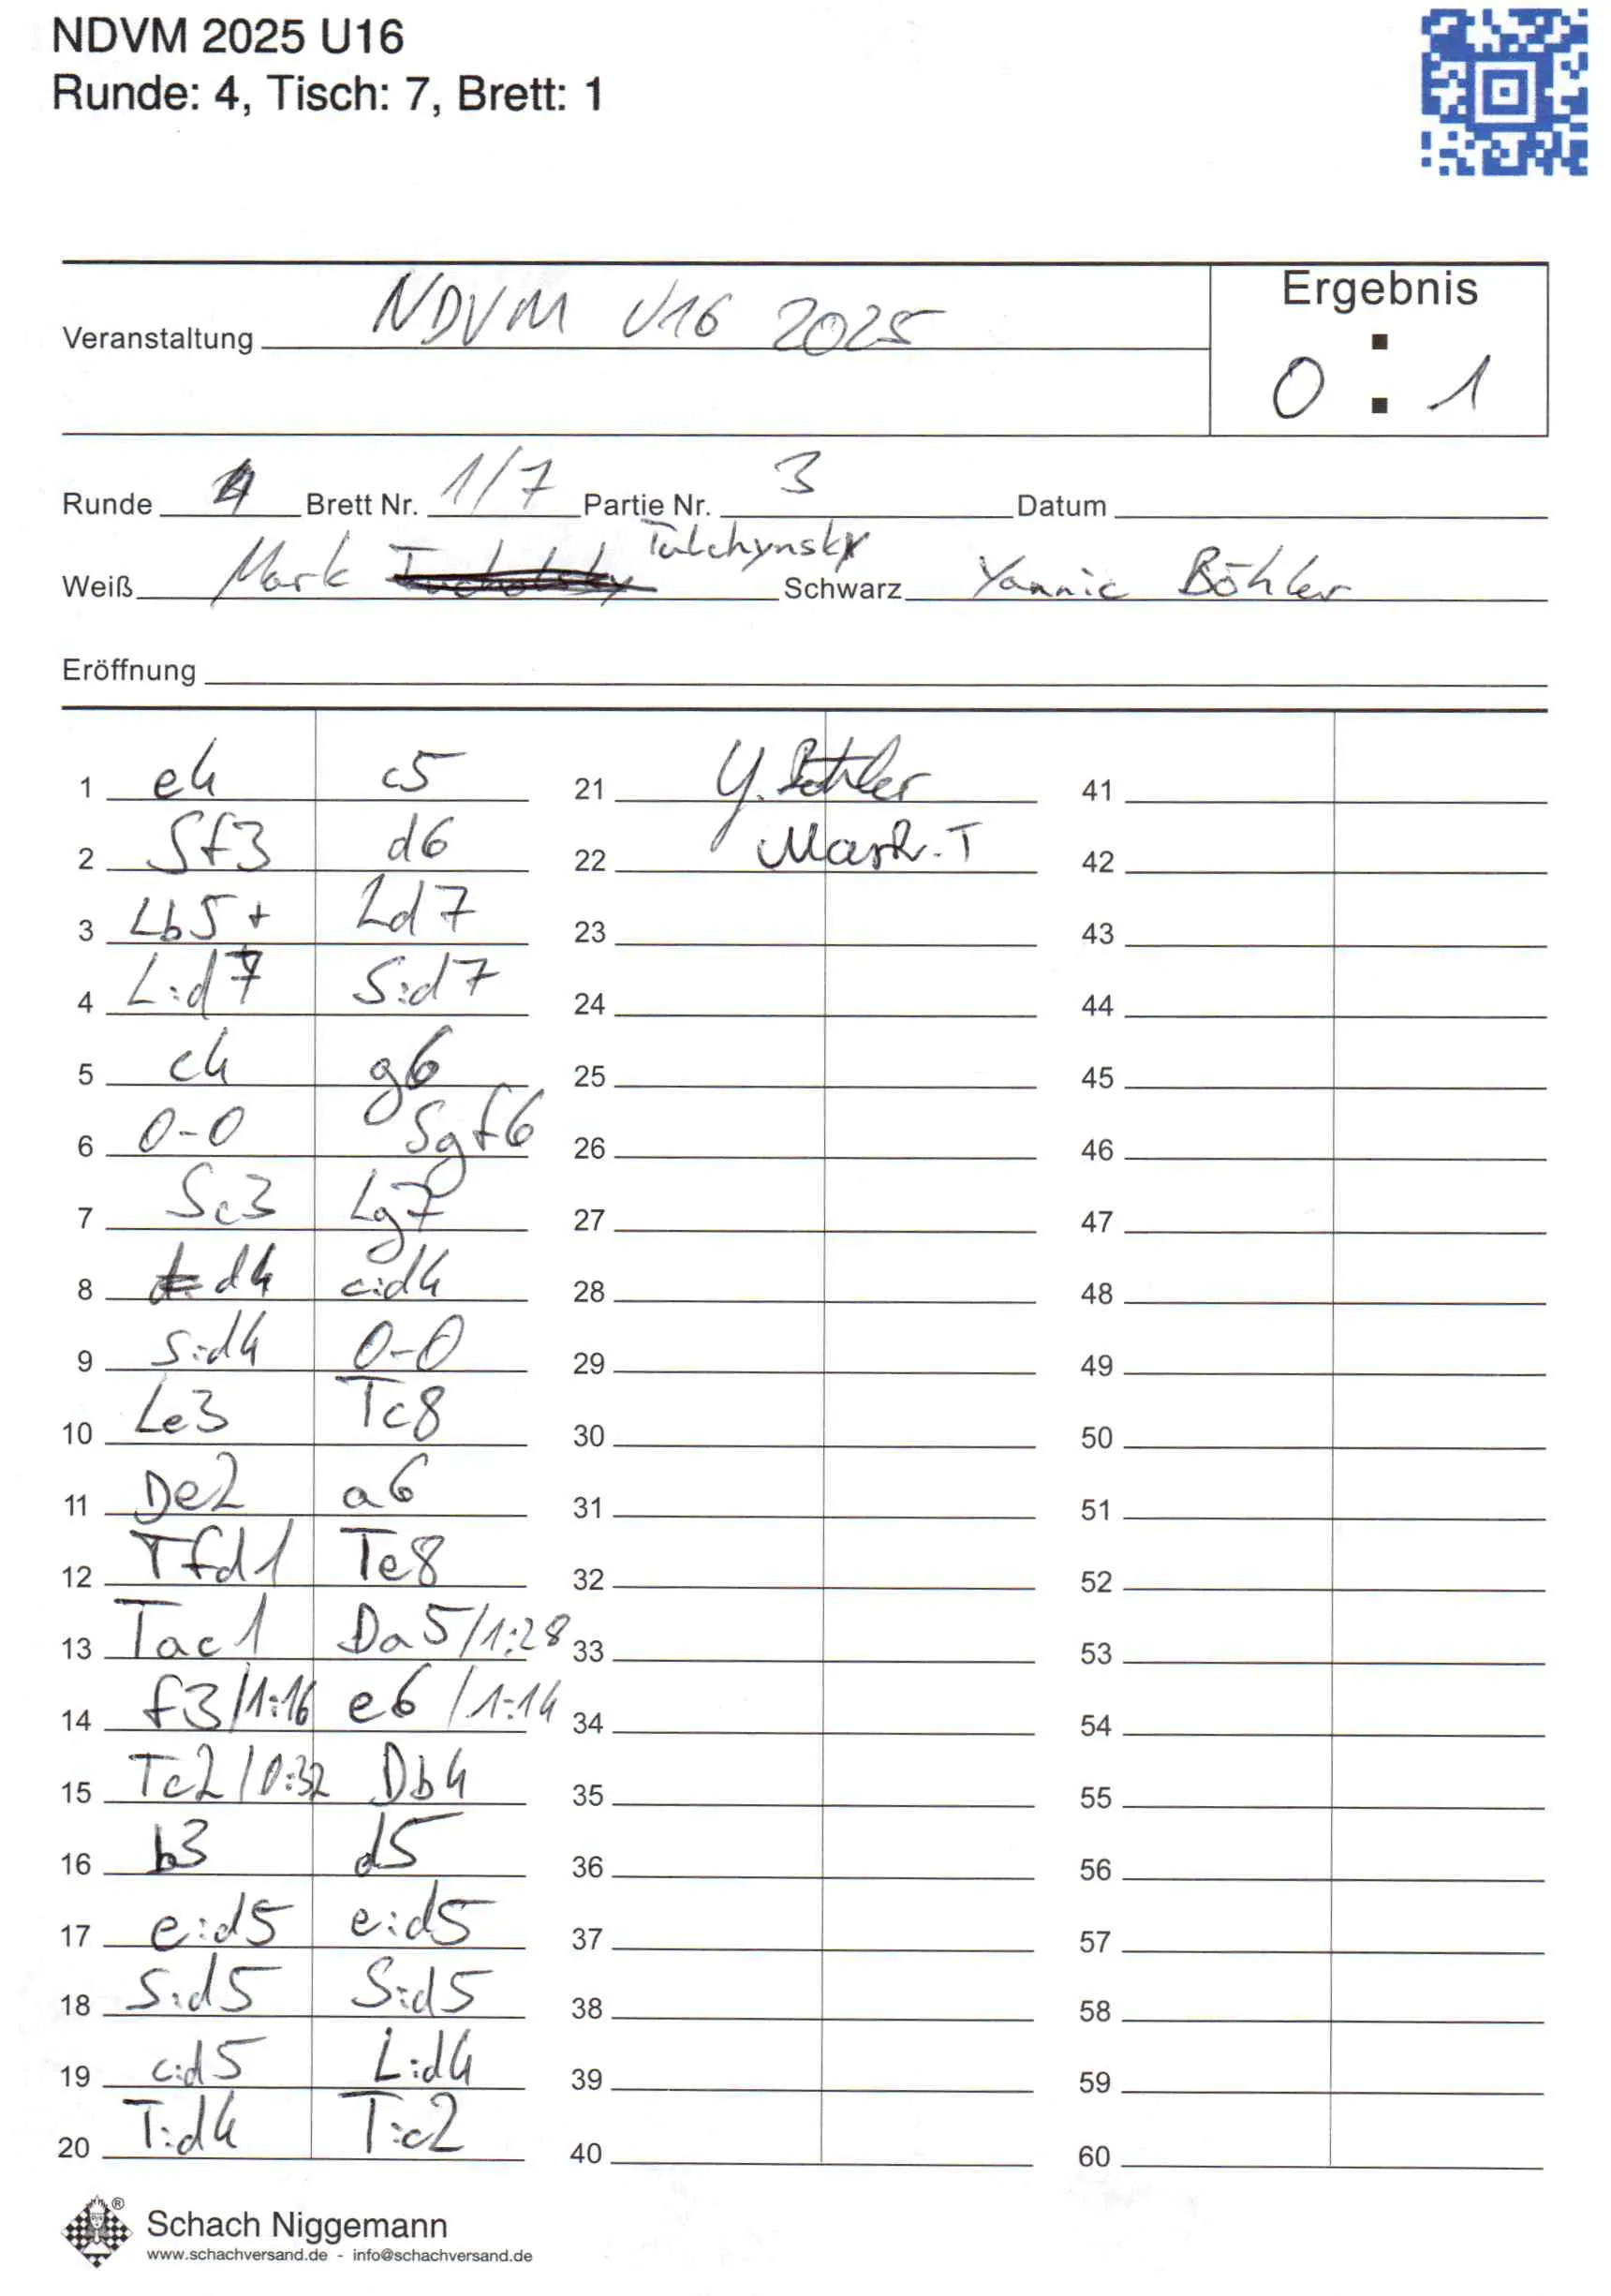 NDVM 2025 U16
Runde: 4, Tisch: 7, Brett: 1
Ergebnis
Veranstaltung NDVM U16 2025
0 : 1
Runde 4 Brett Nr. 1/7 Partie Nr. 3 Datum
Weiß Mark Tulchynsky Schwarz Yannic Böhler
Eröffnung
1 e4 c5 21 Y. Böhler 41
2 Sf3 d6 22 Mark. T 42
3 Lb5+ Ld7 23 43
4 L:d7 S:d7 24 44
5 c4 g6 25 45
6 0-0 Sgf6 26 46
7 Sc3 Lg7 27 47
8 d4 c:d4 28 48
9 S:d4 0-0 29 49
10 Le3 Tc8 30 50
11 De2 a6 31 51
12 Tfd1 Te8 32 52
13 Tac1 Da5/1:28 33 53
14 f3/1:16 e6/1:14 34 54
15 Tc2/0:32 Db4 35 55
16 b3 d5 36 56
17 e:d5 e:d5 37 57
18 S:d5 S:d5 38 58
19 c:d5 L:d4 39 59
20 T:d4 T:c2 40 60
®
Schach Niggemann
www.schachversand.de - info@schachversand.de